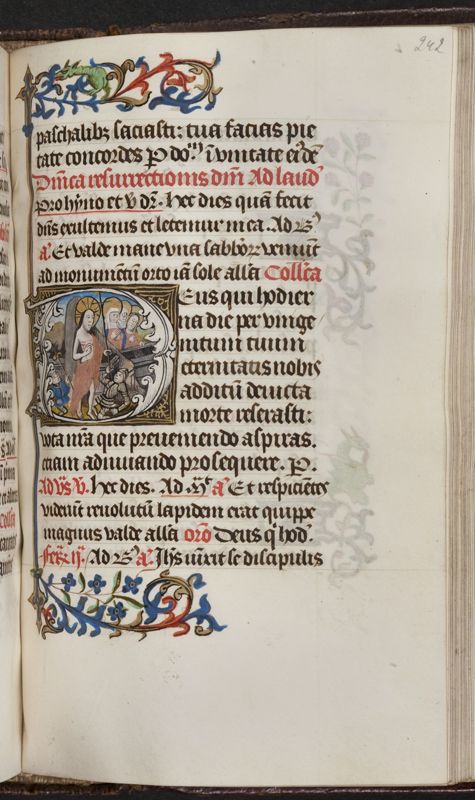 242
paschalibꝫ saciasti: tua facias pie
tate concordes P do᷒ ī vnitate eiꝰdē
Dn̄ica resurrectionis dn̄i Ad laud̄
Pro hȳno et v̄ dr̄. Hec dies quā fecit
dn̄s exultemus et letemur in ea. Ad B̄
a᷒ Et valde mane vna sabboꝝ veniūt
ad monumentū orto iā sole alla Coll̄ta
Deus qui hodier
na die per vnige
nitum tuum
eternitatis nobis
aditū deuicta
morte reserasti:
vota nr̄a que preueniendo aspiras.
etiam adiuuando prosequere. P.
Ad vs̄ v̄. Hec dies. Ad a᷒ Et respiciētes
viderūt reuolutū lapidem erat quippe
magnus valde alla or̄o Deus q̄ hod᷒
fer̄ ij. Ad B̄ a᷒. Ihs̄ iūxit se discipulis